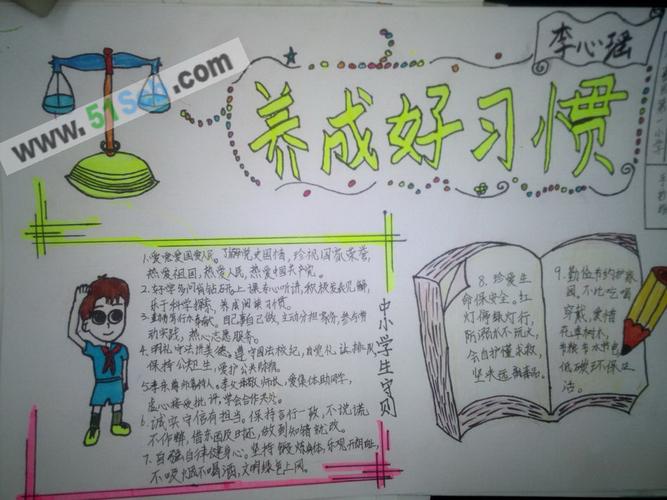 养成好习惯
李心瑶
中小学生守则
1.爱党爱国爱人民。了解党史国情，珍视国家荣誉，
热爱祖国，热爱人民，热爱中国共产党。
2.好学多问肯钻研。上课专心听讲，积极发表见解，
乐于科学探索，养成阅读习惯。
3.勤劳笃行乐奉献。自己事自己做，主动分担家务，参与劳
动实践，热心志愿服务。
4.明礼守法讲美德。遵守国法校纪，自觉礼让排队，
保持公共卫生，爱护公共财物。
5.孝亲尊师善待人。孝父母敬师长，爱集体助同学，
虚心接受批评，学会合作共处。
6.诚实守信有担当。保持言行一致，不说谎
不作弊，借东西及时还，做到知错就改。
7.自强自律健身心。坚持锻炼身体，乐观开朗向上，
不吸烟不喝酒，文明绿色上网。
8.珍爱生
命保安全。红
灯停绿灯行，
防溺水不玩火，
会自护懂求救，
坚决远离毒品。
9.勤俭节约护家
园。不比吃喝
穿戴，爱惜
花草树木，
节粮节水节电，
低碳环保生
活。